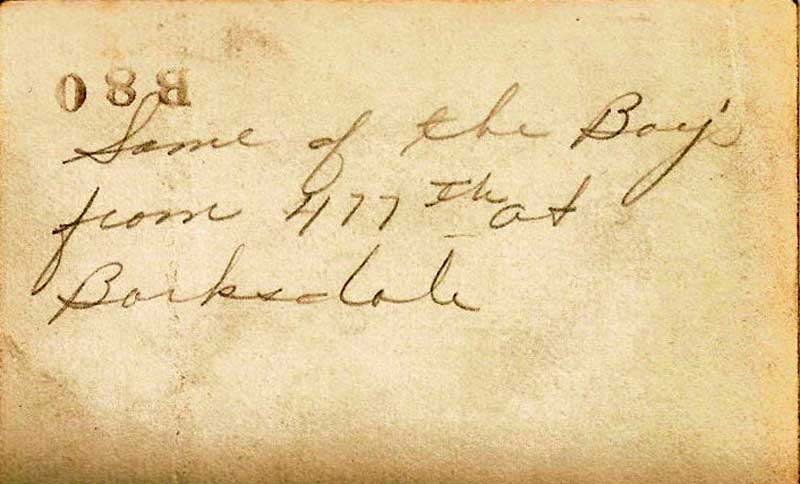 B80
Some of the Boy's
from 477th at
Barksdale